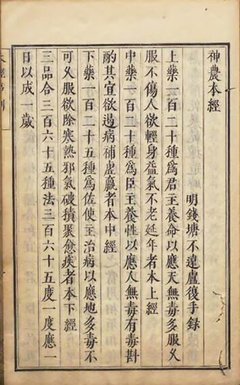 神農本經
明錢塘不遠盧復手錄
上藥一百二十種爲君主養命以應天無毒多服乆
服不傷人欲輕身益氣不老延年者本上經
中藥一百二十種爲臣主養性以應人無毒有毒斟
酌其宜欲遏病補虛羸者本中經
下藥一百二十五種爲佐使主治病以應地多毒不
可乆服欲除寒熱邪氣破積聚愈疾者本下經
三品合三百六十五種法三百六十五度一度應一
日以成一歲